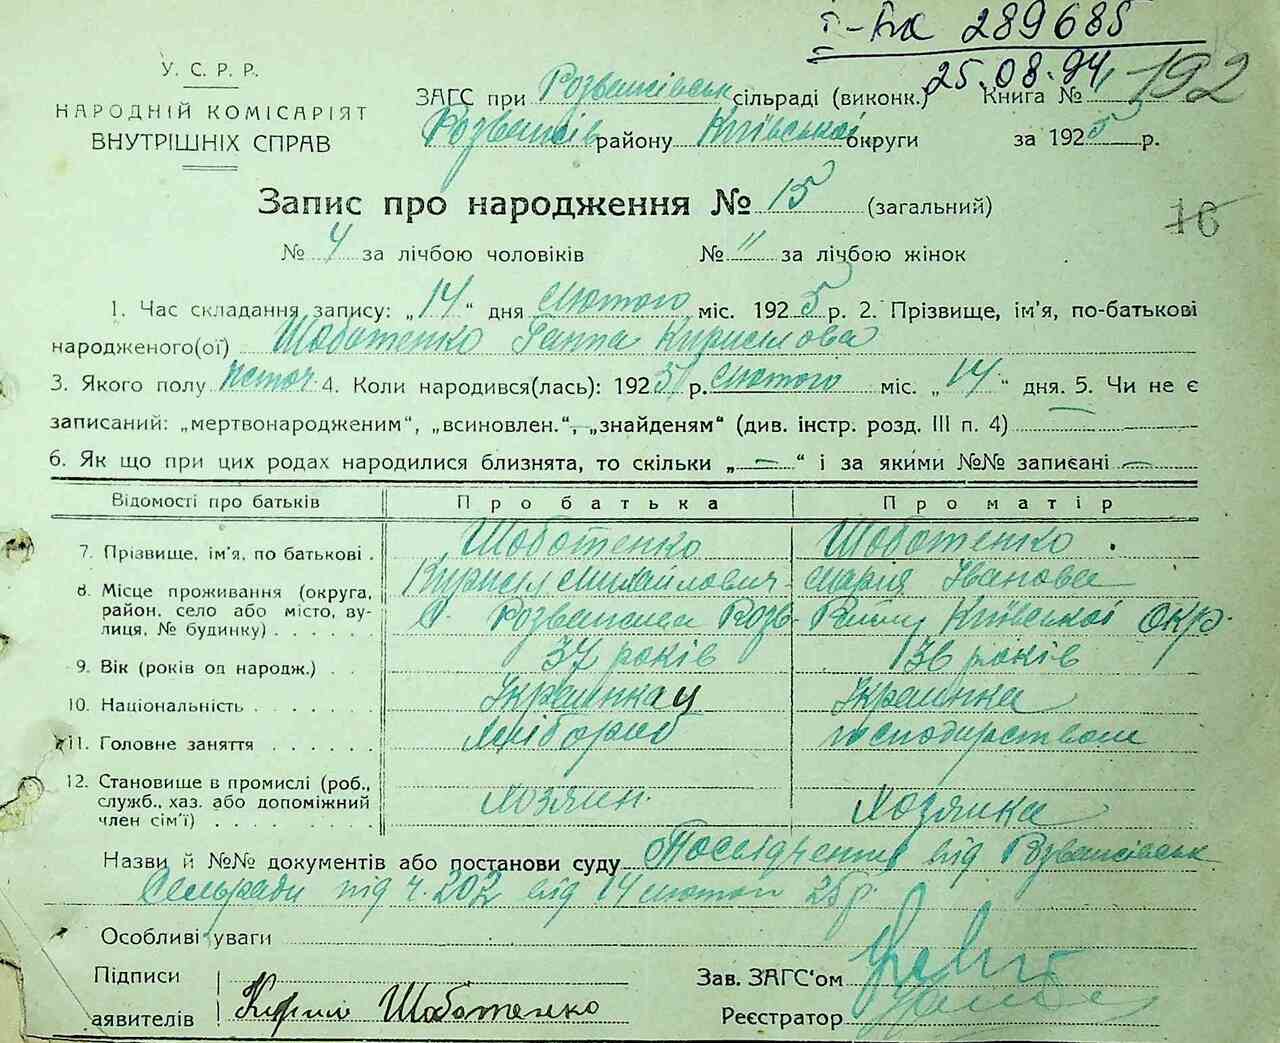 І-БК 289685
25.08.94 192
У. С. Р. Р.
НАРОДНІЙ КОМІСАРІЯТ
ВНУТРІШНІХ СПРАВ
ЗАГС при Розважівськ сільраді (виконк.) Книга №
Розважів району Київської округи за 1925 р.
Запис про народження № 15 (загальний)
16
№ 4 за лічбою чоловіків № 11 за лічбою жінок
1. Час складання запису: „14“ дня лютого міс. 1925 р. 2. Прізвище, ім'я, по-батькові
народженого(ої) Шоботенко Ганна Кирилова
3. Якого полу жіноч 4. Коли народився(лась): 1925 р. лютого міс. „14“ дня. 5. Чи не є
записаний: „мертвонародженим“, „всиновлен.“, „знайденям“ (див. інстр. розд. III п. 4) —
6. Як що при цих родах народилися близнята, то скільки „—“ і за якими №№ записані —
Відомості про батьків Про батька Про матір
7. Прізвище, ім'я, по батькові . Шоботенко Шоботенко
Кирило Михайлович Марія Іванова
8. Місце проживання (округа,
район, село або місто, ву-
лиця, № будинку) . . . . . . С. Розважева Розв- Району Київської Окр.
9. Вік (років од народж.) . . 37 років 36 років
10. Національність . . . . . . Українкац Українка
11. Головне заняття . . . . . . Хлібороб господарством
12. Становище в промислі (роб.,
служб., хаз. або допоміжний
член сім'ї) . . . . . . . . Хозяин. Хозяйка
Назви й №№ документів або постанови суду Посвідчення від Розважівськ
Сельради під ч. 202 від 14 лютого 25 р.
Особливі уваги
Підписи
аявителів Кирило Шоботенко
Зав. ЗАГС'ом
Реєстратор